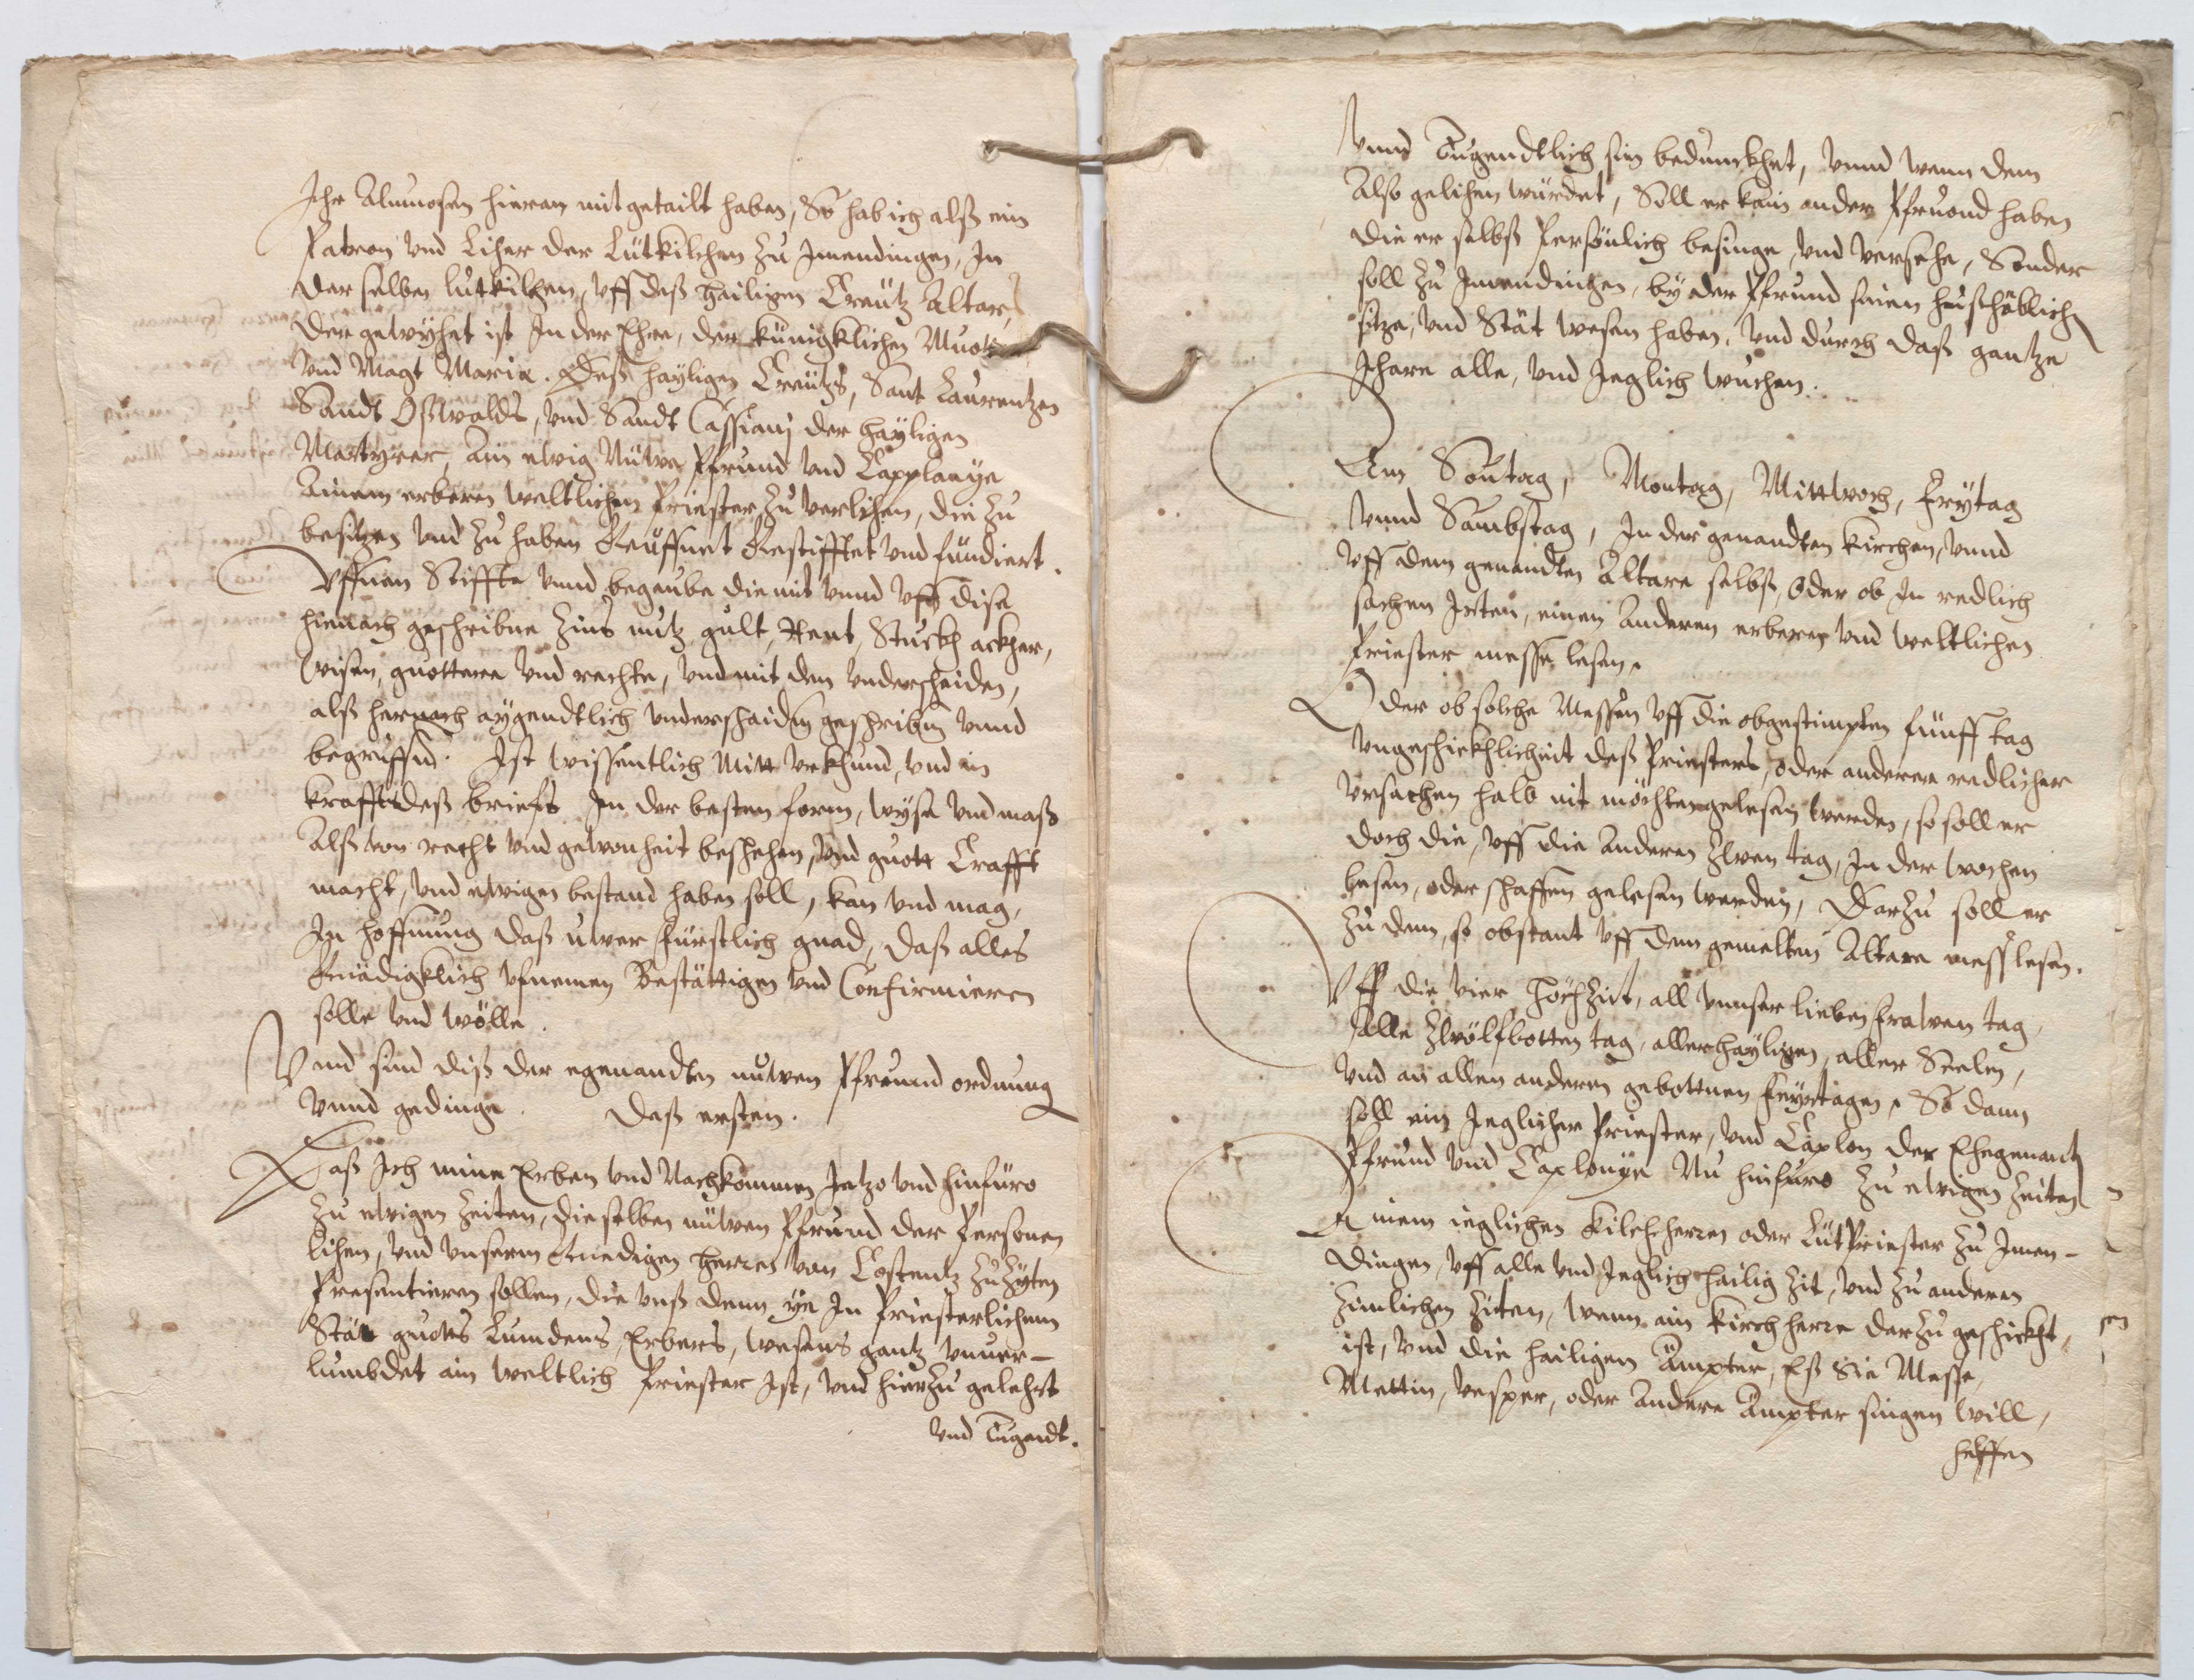 Ihr Almuosen hieran mit getailt haben, So hab ich alß ein
Patron vnd Liher der Lütkilchen zu Imendingen, In
der selben lutkilchen, vff deß hailigen Creütz Altar,
der gewyhet ist In der Ehre, der künigklichen Muot
vnd Magt Maria. Deß hayligen Creützs, Sant Laurentzen
Sandt Oßwalds, vnd Sandt Cassianj der hayligen
Martyrer, Ain ewig Nüwe Pfrund vnd Capplanye
Ainem erberen weltlichen Priester zu verlihen, die zu
besitzen vnd zu haben Geuffnet Gestifftet vnd fundiert.
Vffnen Stiffte vnnd begaube die mit vnnd vff dise
hienach geschribne Zins nutz gült, Rent, Stuckh ackher,
wisen, guottere vnd rechte, vnd mit den vnderscheiden,
alß hernach aygendtlich vnderschaiden geschriben vnnd
begriffen. Ist wissentlich Mitt vrkhund, vnd in
krafft deß briefs In der besten form, wyse vnd maß
Alß von recht vnd gewonheit beschehen, vnd guott Crafft
macht, vnd ewigen bestand haben soll, kan vnd mag,
In hoffnung daß uwer fürstlich gnad, daß alles
Gnädigklich vfnemen Bestättigen vnd Confirmieren
solle vnd wölle.
Vnd sind diß der egenandten nuwen Pfruond ordnung
vnnd gedinge. Daß ersten.
Daß Ich mine Erben vnd Nachkommen Jetzo vnd hinfüro
zu ewigen Zeiten, die selben nüwen Pfrund der Personen
lihen, vnd vnserm Gnedigen herren von Costentz zu Zyten
Presentieren sollen, die vnß denn ye In Priesterlichem
Stät guots Lumdens, Erbers, wesens gantz vnuer-
lumbdet ain weltlich Priester Ist, vnd hierzu gelehrt
vnd Tugendt.
Vnnd Tugendtlich sin bedunckhet, vnnd wenn dem
Also gelihen würdet, Soll er kain ander Pfruond haben
die er selbß Persönlich besinge, vnd versehe, Sonder
soll zu Imendingen, by der Pfrund sinen hußhäblich
sitze, vnd Stät wesen haben, vnd durch daß gantze
Jhare alle, vnd Jeglich wuchen.
Am Sontag, Montag, Mittwoch, Frytag
vnnd Sambstag, In der genandten kirchen, vnnd
vff dem genandten Altare selbß, Oder ob In redlich
sachen Irten, einen Anderen erberen vnd weltlichen
Priester messe lesen.
Oder ob solche Messen vff die obgestimpten fünff tag
vngeschickhlicheit deß Priesters, oder anderer redlicher
vrsachen halb nit möchten gelesen werden, so soll er
doch die, vff die Anderen Zwen tag, In der wochen
lesen, oder schaffen gelesen werden, Darzu soll er
zu dem, so obstaut vff dem gemelten Altare mess lesen.
Vff die vier Hochzit, all vnnser lieben frawen tag,
alle zwölfbotten tag, aller hayligen, aller Seelen,
vnd an allen anderen gebottnen feyrtagen. So dann
soll ein Jeglicher Priester, vnd Caplon der Ehegenant
Pfrund vnd Caplonye Nu hinfuro zu ewigen Zeiten
Ainem ieglichen Kilchherren oder Lütpriester zu Imen-
dingen, vff alle vnd Jeglich hailig Zit, vnd zu anderen
zimlichen Ziten, wenn ein kirchherre darzu geschickht,
ist, vnd die hailigen Ämpter, Eß sie Messe,
Mettin, Vesper, oder Andere Ämpter singen will,
helffen